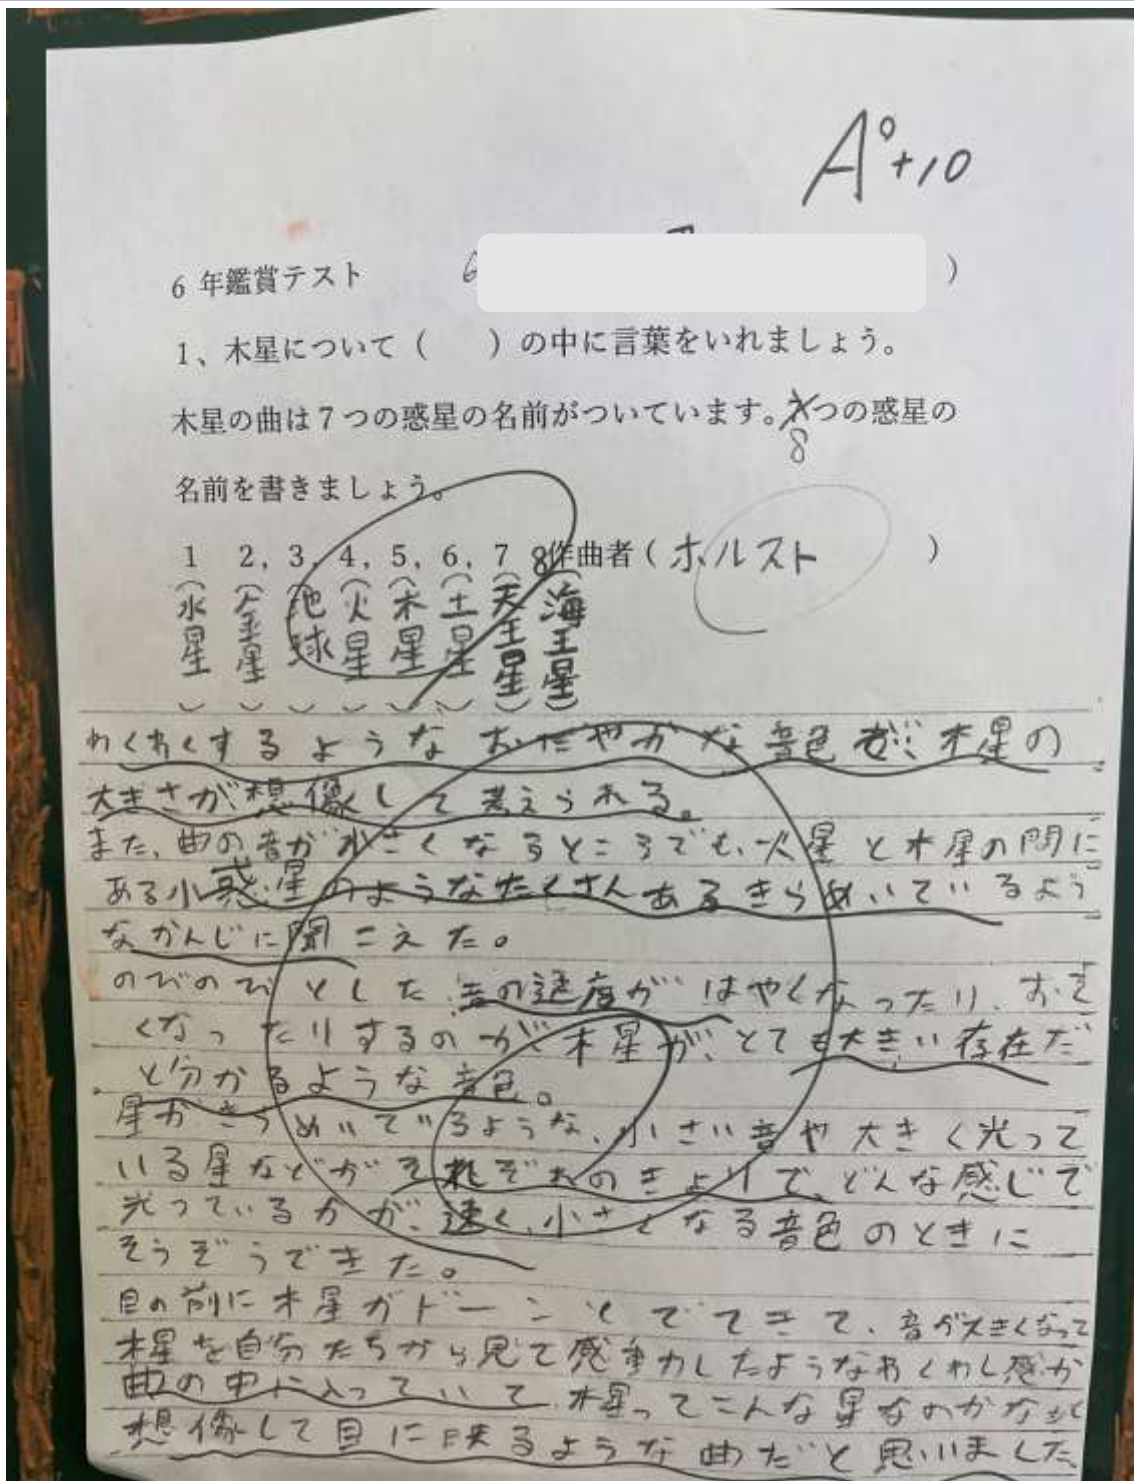 A°+10
6年鑑賞テスト 6 )
1、木星について（　　）の中に言葉をいれましょう。
木星の曲は7つの惑星の名前がついています。7つの惑星の
8
名前を書きましょう。
1 2, 3, 4, 5, 6, 7 8作曲者（ホルスト　　）
（水星）（金星）（地球）（火星）（木星）（土星）（天王星）（海王星）
わくわくするようなおだやかな音色が木星の
大きさが想像して考えられる。
また、曲の音が小さくなるところでも、火星と木星の間に
ある小惑星のようなたくさんあるきらめいているよう
なかんじに聞こえた。
のびのびとした音の速度がはやくなったり、おそ
くなったりするのが木星が、とても大きい存在だ
と分かるような音色。
星がきらめいているような、小さい音や大きく光って
いる星などがそれぞれのきょりで、どんな感じで
光っているかが、速く、小さくなる音色のときに
そうぞうできた。
目の前に木星がドーンとでてきて、音が大きくなって
木星を自分たちから見て感動したようなわくわく感が
曲の中に入っていて、木星ってこんな星なのかなと
想像して目に映るような曲だと思いました